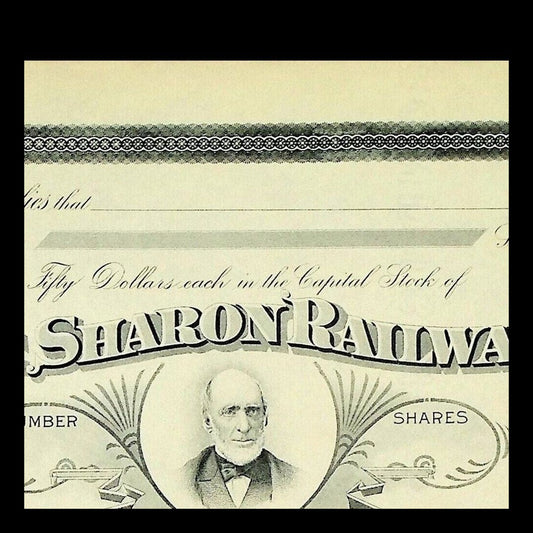 that
Fifty Dollars each in the Capital Stock of
SHARON RAILWA
UMBER
SHARES